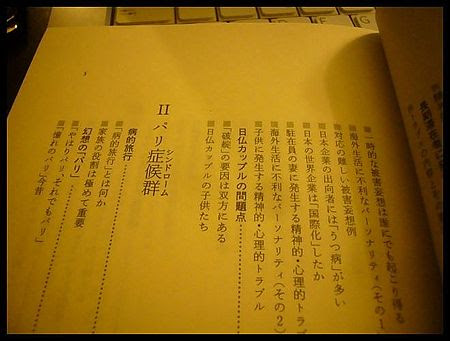 ■一時的な被害妄想は誰にでも起こり得る
■海外生活に不利なパーソナリティ(その1
■対応の難しい被害妄想例
■日本企業の出向者には「うつ病」が多い
■日本の世界企業は「国際化」したか
■駐在員の妻に発生する精神的・心理的トラブ
■海外生活に不利なパーソナリティ(その2)
■子供に発生する精神的・心理的トラブル
日仏カップルの問題点
■「破綻」の要因は双方にある
■日仏カップルの子供たち
II パリ症候群
シンドローム
病的旅行
■「病的旅行」とは何か
■家族の役割は極めて重要
幻想の「パリ」
■「やはりパリ、それでもパリ」
■「憧れのパリ」今昔
3